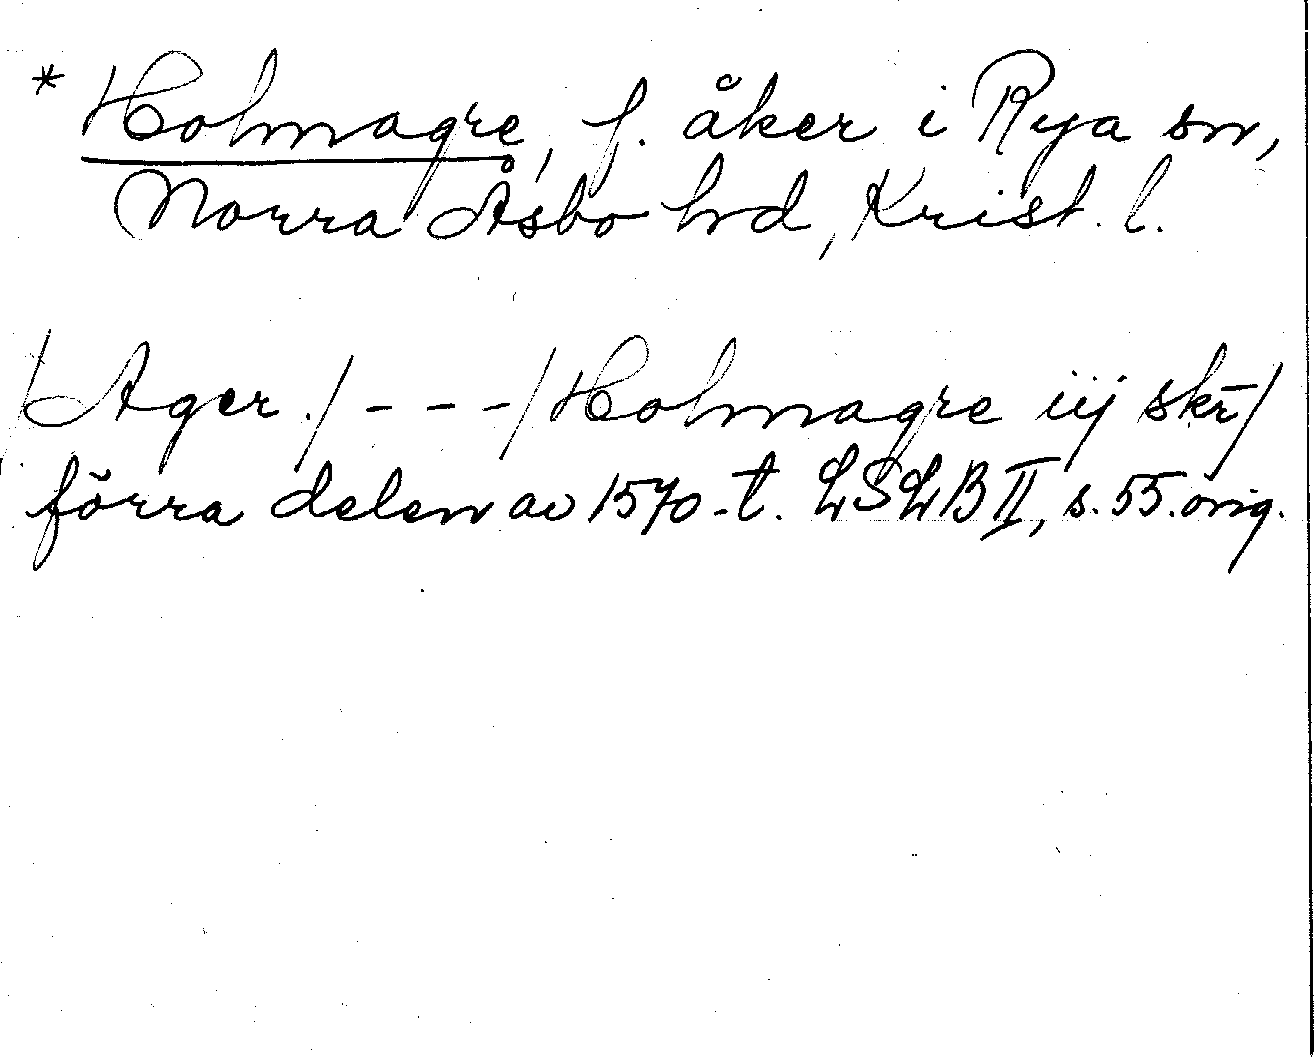 * Holmagre, f. åker i Rya sn,
Norra Åsbo hd, Krist. l.
/Ager./ - - - /Holmagre iij skr̄/
förra delen av 1570-t. LSLB II, s. 55. orig.